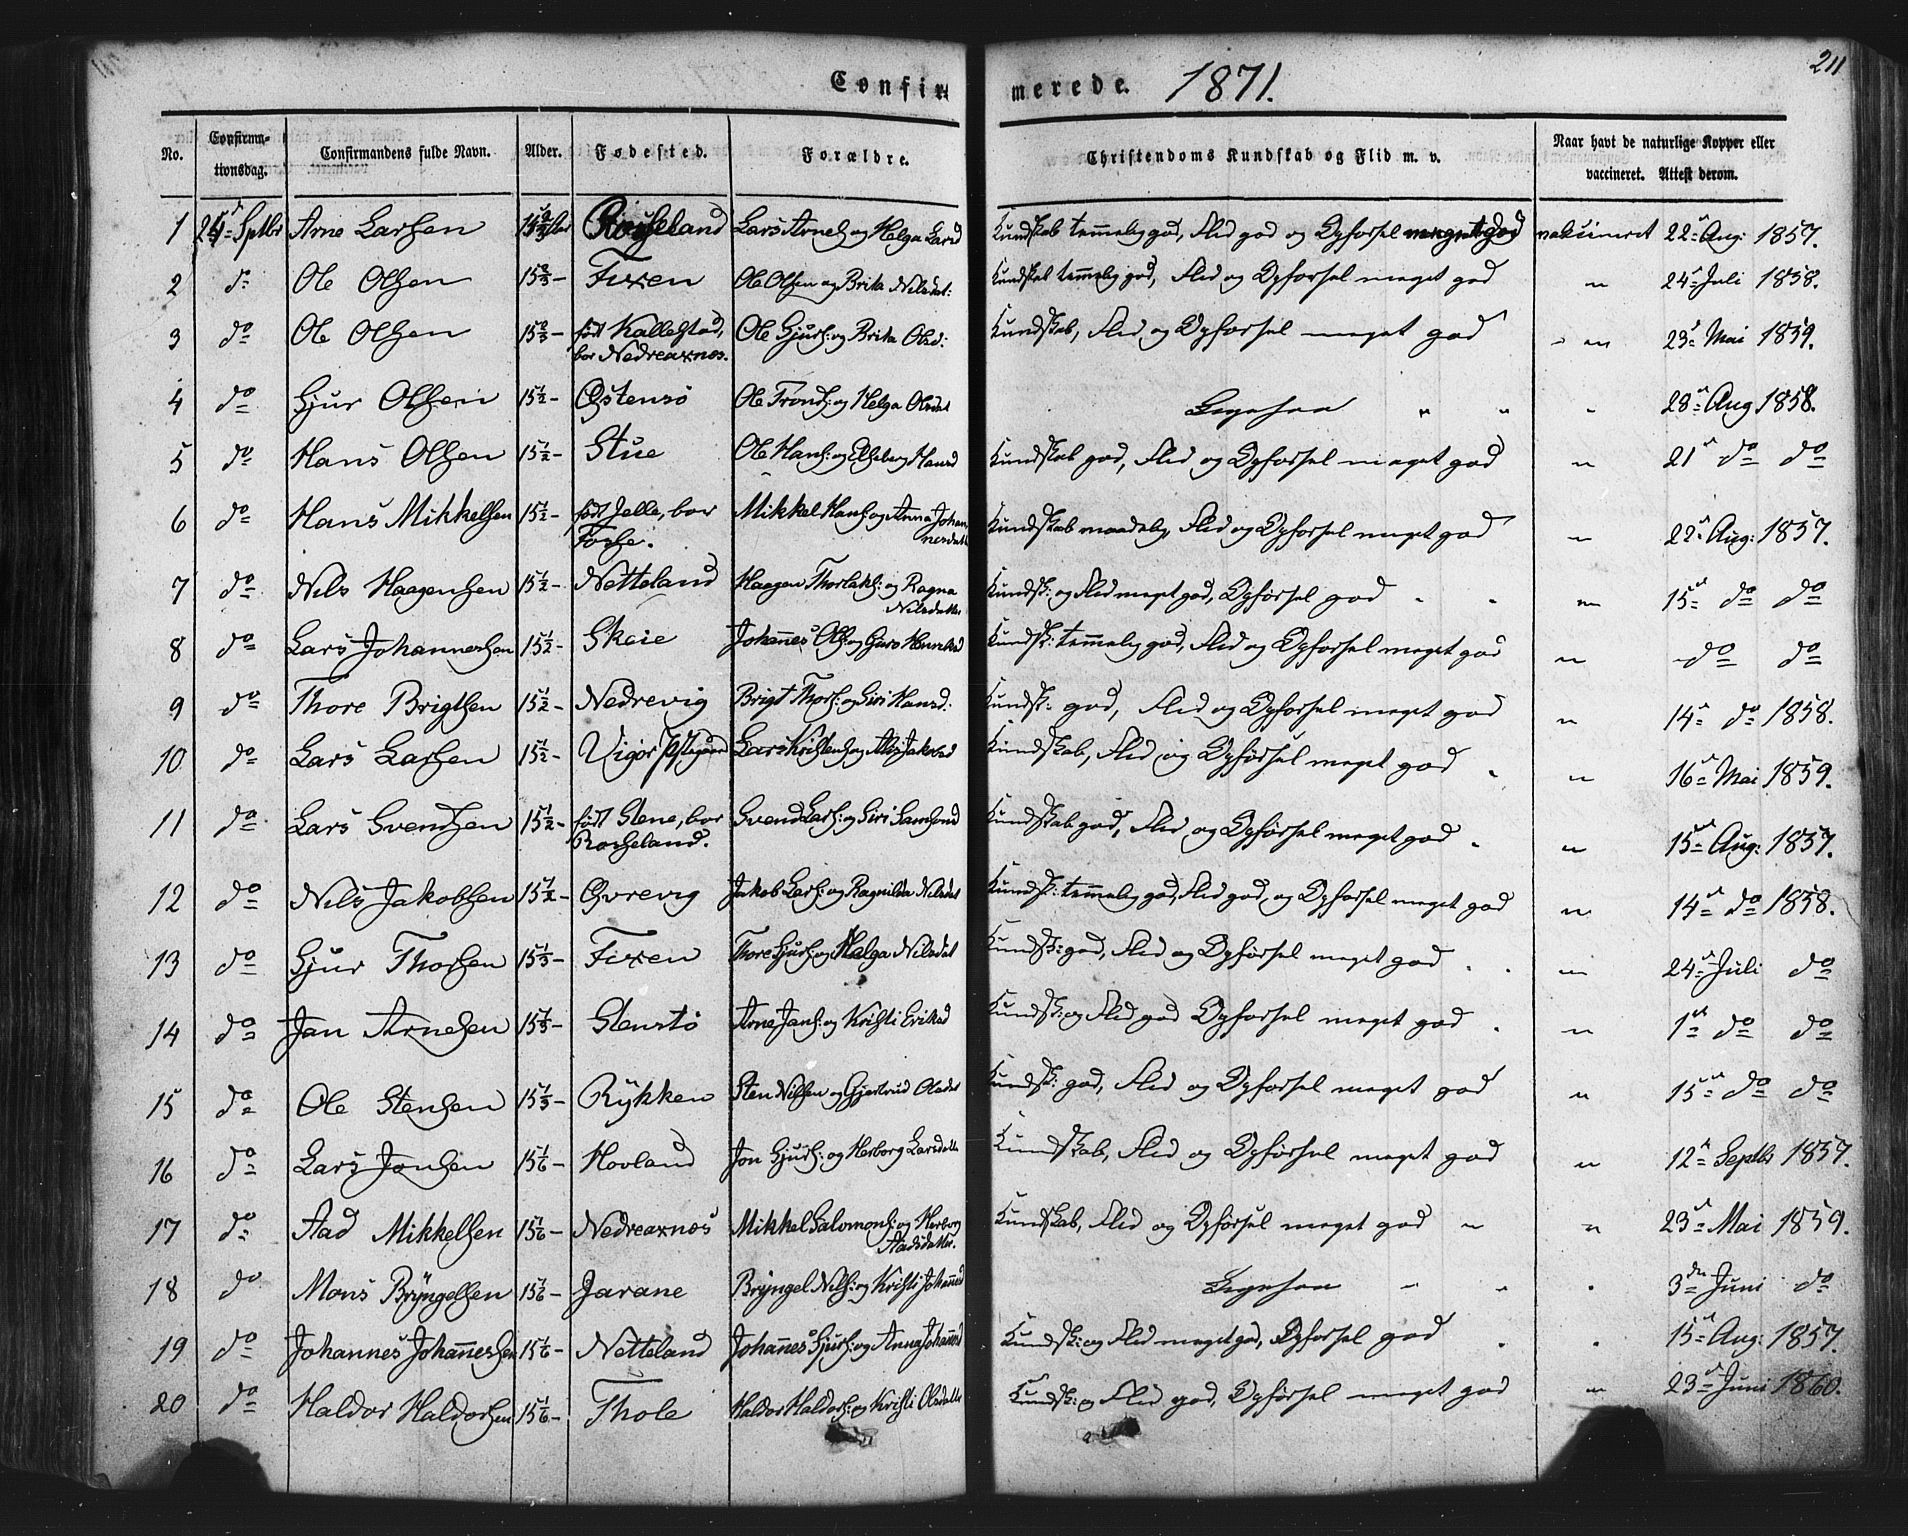 211
Confir- merede. 1871.
No. Confirmationsdag. Confirmandens fulde Navn. Alder. Fødested. Forældre. Christendoms Kundskab og Flid m. v. Naar havt de naturlige Kopper eller vaccineret. Attest derom.
1 24de Septbr Arne Larsen Roseland Lars Arnes: og Helga Larsd Kundskab temmelig god, Flid god og Opførsel meget god vakcineret 22de Aug: 1857.
2 do Ole Olsen 15 2/3 - Fixen Ole Olsen og Brita Nilsdat: Kundskab temmelig god, Flid og Opførsel meget god " 24de Juli 1858.
3 do Ole Olsen 15 2/3 - født Kallestad, Ole Gjurs: og Brita Olsd: Kundskab, Flid og Opførsel meget god " 23de Mai 1859.
bor Nedreaxnes.
4 do Gjur Olsen 15 1/2 - Østensø Ole Tronds: og Helga Olsdat Ligesaa " " " 28de Aug 1858.
5 do Hans Olsen 15 1/2 - Stue Ole Hans: og Hansd Kundskab god, Flid og Opførsel meget god " 21de do do
6 do Hans Mikkelsen 15 1/2 - født Jelle, bor Mikkel Hans: og Anna Johan- Kundskab maadelig, Flid og Opførsel meget god " 22de Aug: 1857.
Fosse. nesdatt
7 do Nils Haagensen 15 1/2 - Netteland Haagen Thorlaks: og Ragna Kundsk: og Flid meget god, Opførsel god " " " 15de do do
Nilsdatter
8 do Lars Johannessen 15 1/2 - Skeie Johannes Ols: og Guro Henriksd Kundsk: temmelig god, Flid og Opførsel meget god " do do
9 do Thore Brigtsen 15 1/2 - Nedrevig Brigt Thors: og Siri Hansd: Kundsk: god, Flid og Opførsel meget god " 14de do 1858.
10 do Lars Larsen 15 1/2 - Vigør Lars Kristens: og Jakobsd Kundskab, Flid og Opførsel meget god " " 16de Mai 1859.
11 do Lars Svendsen 15 1/2 - født Stene, bor Svend Lars: og Siri Samsond Kundskab god, Flid og Opførsel meget god " " 15de Aug: 1857.
Rosseland.
12 do Nils Jakobsen 15 1/2 - Øvrevig Jakob Lars: og Ragnilda Nilsdat Kundsk: temmelig god, Flid god, og Opførsel meget god " 14de do 1858.
13 do Gjur Thorsen 15 1/3 - Fixen Thore Gjurs: og Helga Nilsdat Kundsk: god, Flid og Opførsel meget god " " " 24de Juli do
14 do Jan Arnesen 15 1/3 - Stenstø Arne Jans: og Kristi Eriksd Kundsk: og Flid god Opførsel meget god " " 1ste do do
15 do Ole Stensen 15 1/3 - Rykken Sten Nilsen og Gjertrud Olsdat Kundsk: god, Flid og Opførsel meget god " 15de do do
16 do Lars Jonsen 15 1/6 - Hovland Jon Gjurs: og Herborg Larsdatt Kundskab, Flid og Opførsel meget god " 12te Septbr 1857.
17 do Aad Mikkelsen 15 1/6 - Nedreaxnes Mikkel Salomons: og Herborg Kundskab, Flid og Opførsel meget god " " 23de Mai 1859.
Aadsdatter.
18 do Mons Bryngelsen 15 1/6 - Jarane Bryngel Nils: og Kristi Johannesd Ligesaa " " " 3die Juni do
19 do Johannes Johannessen 15 1/6 - Netteland Johannes Gjurs: og Anna Johannesd Kundsk: og Flid meget god, Opførsel god " " 15de Aug: 1857.
20 do Haldor Haldorsen 15 1/6 - Thole Haldor Haldors: og Kristi Olsdatt Kundsk: og Flid god, Opførsel meget god " 23de Juni 1860.